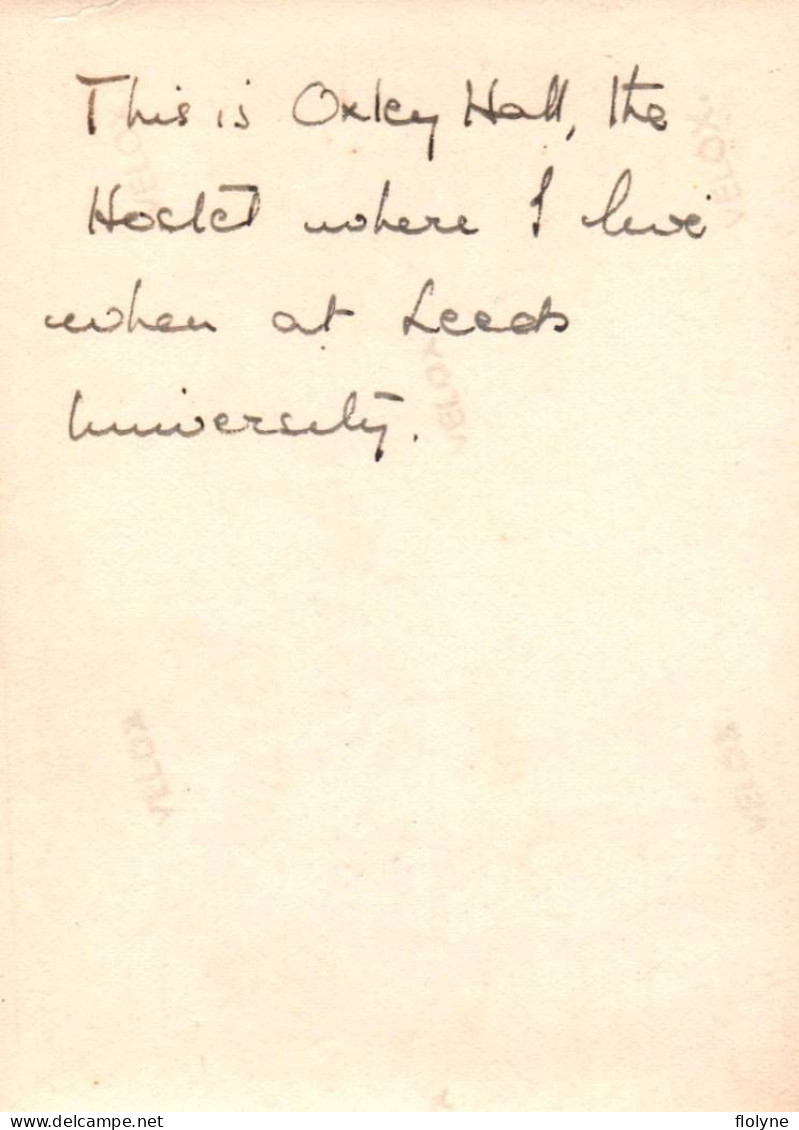 This is Oxley Hall, the
Hostel where I live
when at Leeds
University.
VELOX
VELOX
VELOX
VELOX
VELOX
flolyne